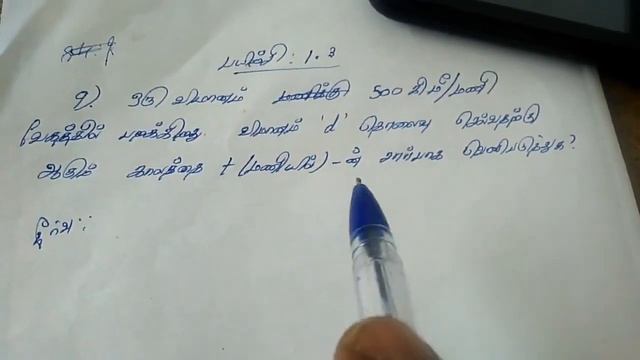 பயிற்சி : 1.3
9) ஒரு விமானம் 500 கி.மீ/மணி
வேகத்தில் பறக்கிறது. விமானம் 'd' தொலைவு செல்வதற்கு
ஆகும் காலத்தை t (மணியில்) -ன் சார்பாக வெளிபடுத்துக?
தீர்வு :